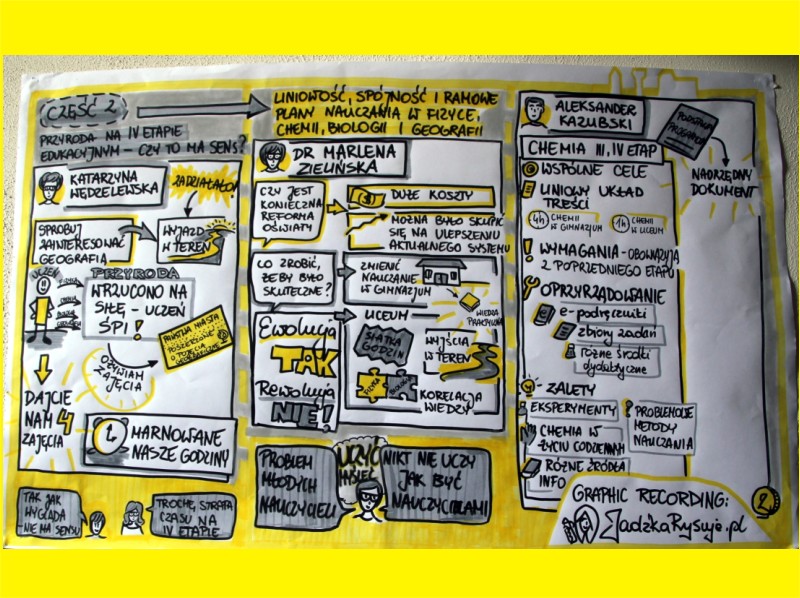 CZĘŚĆ 2
PRZYRODA NA IV ETAPIE
EDUKACYJNYM – CZY TO MA SENS?
KATARZYNA
WĘDZELEWSKA
ZADZIAŁAŁO!
SPRÓBUJ
ZAINTERESOWAĆ
GEOGRAFIĄ
WYJAZD
W TEREN
UCZEŃ
FIZYKA
CHEMIA
BIOLOGIA
GEOGRAFIA
PRZYRODA
WRZUCONO NA
SIŁĘ – UCZEŃ
ŚPI!
PAŃSTWA MIASTA
POSZERZONE
O POJĘCIA
OŻYWIAM
ZAJĘCIA
DAJCIE
NAM 4
ZAJĘCIA
MARNOWANE
NASZE GODZINY
TAK JAK
WYGLĄDA
NIE MA SENSU
TROCHĘ STRATA
CZASU NA
IV ETAPIE
LINIOWOŚĆ, SPÓJNOŚĆ I RAMOWE
PLANY NAUCZANIA W FIZYCE,
CHEMII, BIOLOGII I GEOGRAFII
DR MARLENA
ZIELIŃSKA
CZY JEST
KONIECZNA
REFORMA
OŚWIATY
DUŻE KOSZTY
MOŻNA BYŁO SKUPIĆ
SIĘ NA ULEPSZENIU
AKTUALNEGO SYSTEMU
CO ZROBIĆ,
ŻEBY BYŁO
SKUTECZNE?
ZMIENIĆ
NAUCZANIE W
GIMNAZJUM
WIEDZA
PRAKTYCZNA
Ewolucja
TAK
Rewolucja
NIE!
LICEUM
SIATKA
GODZIN
WYJŚCIA
W TEREN
FIZYKA
BIOLOGIA
KORELACJA
WIEDZY
PROBLEM
MŁODYCH
NAUCZYCIELI
UCZYĆ
MYŚLEĆ
NIKT NIE UCZY
JAK BYĆ
NAUCZYCIELAMI
ALEKSANDER
KAZUBSKI
PODSTAWA
PROGRAMOWA
NADRZĘDNY
DOKUMENT
CHEMIA III, IV ETAP
WSPÓLNE CELE
LINIOWY UKŁAD
TREŚCI
4h CHEMII
W GIMNAZJUM
1h CHEMII
W LICEUM
! WYMAGANIA – OBOWIĄZUJĄ
Z POPRZEDNIEGO ETAPU
OPRZYRZĄDOWANIE
e-podręczniki
zbiory zadań
różne środki
dydaktyczne
ZALETY
EKSPERYMENTY
CHEMIA W
ŻYCIU CODZIENNYM
RÓŻNE ŹRÓDŁA
INFO
PROBLEMOWE
METODY
NAUCZANIA
2
GRAPHIC RECORDING:
JadzkaRysuje.pl